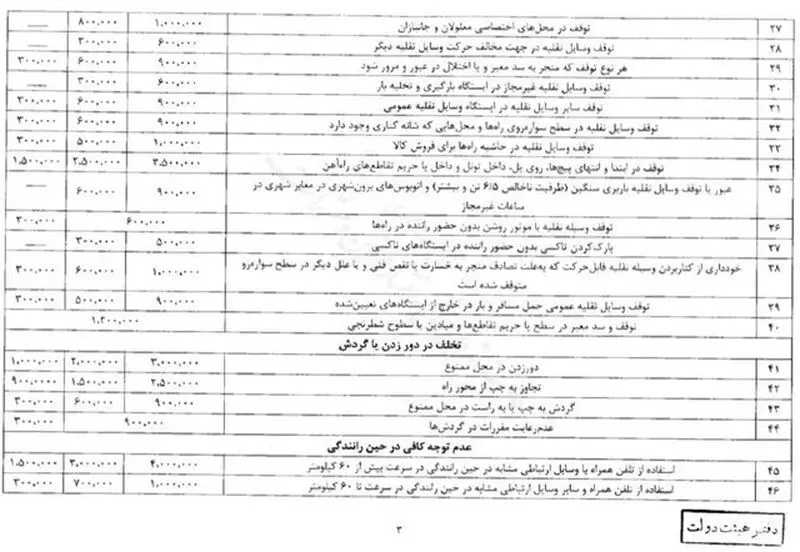 ۲۷ توقف در محل‌های اختصاصی معلولان و جانبازان ۱,۰۰۰,۰۰۰ ۸۰۰,۰۰۰ ——
۲۸ توقف وسایل نقلیه در جهت مخالف حرکت وسایل نقلیه دیگر ۶۰۰,۰۰۰ ۳۰۰,۰۰۰ ——
۲۹ هر نوع توقف که منجر به سد معبر و یا اختلال در عبور و مرور شود ۹۰۰,۰۰۰ ۶۰۰,۰۰۰ ۳۰۰,۰۰۰
۳۰ توقف وسایل نقلیه غیرمجاز در ایستگاه بارگیری و تخلیه بار ۶۰۰,۰۰۰ ۳۰۰,۰۰۰ ——
۳۱ توقف سایر وسایل نقلیه در ایستگاه وسایل نقلیه عمومی ۹۰۰,۰۰۰ ۶۰۰,۰۰۰ ۳۰۰,۰۰۰
۳۲ توقف وسایل نقلیه در سطح سواره‌روی راه‌ها و محل‌هایی که شانه کناری وجود دارد ۹۰۰,۰۰۰ ۶۰۰,۰۰۰ ۳۰۰,۰۰۰
۳۳ توقف وسایل نقلیه در حاشیه راه‌ها برای فروش کالا ۱,۰۰۰,۰۰۰ ۵۰۰,۰۰۰ ۳۰۰,۰۰۰
۳۴ توقف در ابتدا و انتهای پیچ‌ها، روی پل، داخل تونل و داخل یا حریم تقاطع‌های راه‌آهن ۳,۵۰۰,۰۰۰ ۲,۵۰۰,۰۰۰ ۱,۵۰۰,۰۰۰
۳۵ عبور یا توقف وسایل نقلیه باربری سنگین (ظرفیت ناخالص ۶/۵ تن و بیشتر) و اتوبوس‌های برون‌شهری در معابر شهری در ۹۰۰,۰۰۰ ۶۰۰,۰۰۰ ——
ساعات غیرمجاز
۳۶ توقف وسیله نقلیه با موتور روشن بدون حضور راننده در راه‌ها ۶۰۰,۰۰۰ ۳۰۰,۰۰۰
۳۷ پارک‌کردن تاکسی بدون حضور راننده در ایستگاه‌های تاکسی ۵۰۰,۰۰۰ ۳۰۰,۰۰۰ ——
۳۸ خودداری از کناربردن وسیله نقلیه قابل‌حرکت که به‌علت تصادف منجر به خسارت یا نقص فنی و یا علل دیگر در سطح سواره‌رو ۱,۰۰۰,۰۰۰ ۶۰۰,۰۰۰ ۳۰۰,۰۰۰
متوقف شده است
۳۹ توقف وسایل نقلیه عمومی حمل مسافر و بار در خارج از ایستگاه‌های تعیین‌شده ۹۰۰,۰۰۰ ۵۰۰,۰۰۰ ۳۰۰,۰۰۰
۴۰ توقف و سد معبر در سطح یا حریم تقاطع‌ها و میادین یا سطوح شطرنجی ۱,۲۰۰,۰۰۰
تخلف در دور زدن یا گردش
۴۱ دورزدن در محل ممنوع ۳,۰۰۰,۰۰۰ ۲,۰۰۰,۰۰۰ ۱,۰۰۰,۰۰۰
۴۲ تجاوز به چپ از محور راه ۲,۵۰۰,۰۰۰ ۱,۵۰۰,۰۰۰ ۹۰۰,۰۰۰
۴۳ گردش به چپ یا به راست در محل ممنوع ۹۰۰,۰۰۰ ۶۰۰,۰۰۰ ۳۰۰,۰۰۰
۴۴ عدم‌رعایت مقررات در گردش‌ها ۹۰۰,۰۰۰ ۳۰۰,۰۰۰
عدم توجه کافی در حین رانندگی
۴۵ استفاده از تلفن همراه یا وسایل ارتباطی مشابه در حین رانندگی در سرعت بیش از ۶۰ کیلومتر ۴,۰۰۰,۰۰۰ ۳,۰۰۰,۰۰۰ ۱,۵۰۰,۰۰۰
۴۶ استفاده از تلفن همراه و سایر وسایل ارتباطی مشابه در حین رانندگی در سرعت تا ۶۰ کیلومتر ۱,۰۰۰,۰۰۰ ۷۰۰,۰۰۰ ۳۰۰,۰۰۰
۳
دفتر هیئت دولت